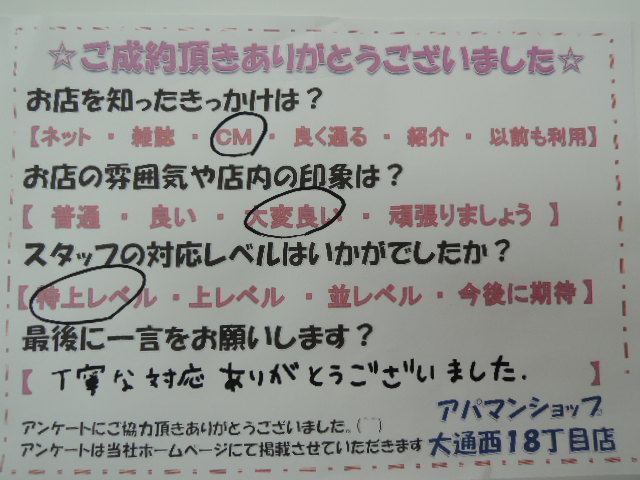 ☆ご成約頂きありがとうございました☆
お店を知ったきっかけは？
【ネット ・ 雑誌 ・ CM ・ 良く通る ・ 紹介 ・ 以前も利用】
お店の雰囲気や店内の印象は？
【 普通 ・ 良い ・ 大変良い ・ 頑張りましょう 】
スタッフの対応レベルはいかがでしたか？
【 特上レベル ・ 上レベル ・ 並レベル ・ 今後に期待 】
最後に一言をお願いします？
【 丁寧な対応 ありがとうございました. 】
アンケートにご協力頂きありがとうございました。(⌒⌒)
アンケートは当社ホームページにて掲載させていただきます
アパマンショップ
大通西18丁目店